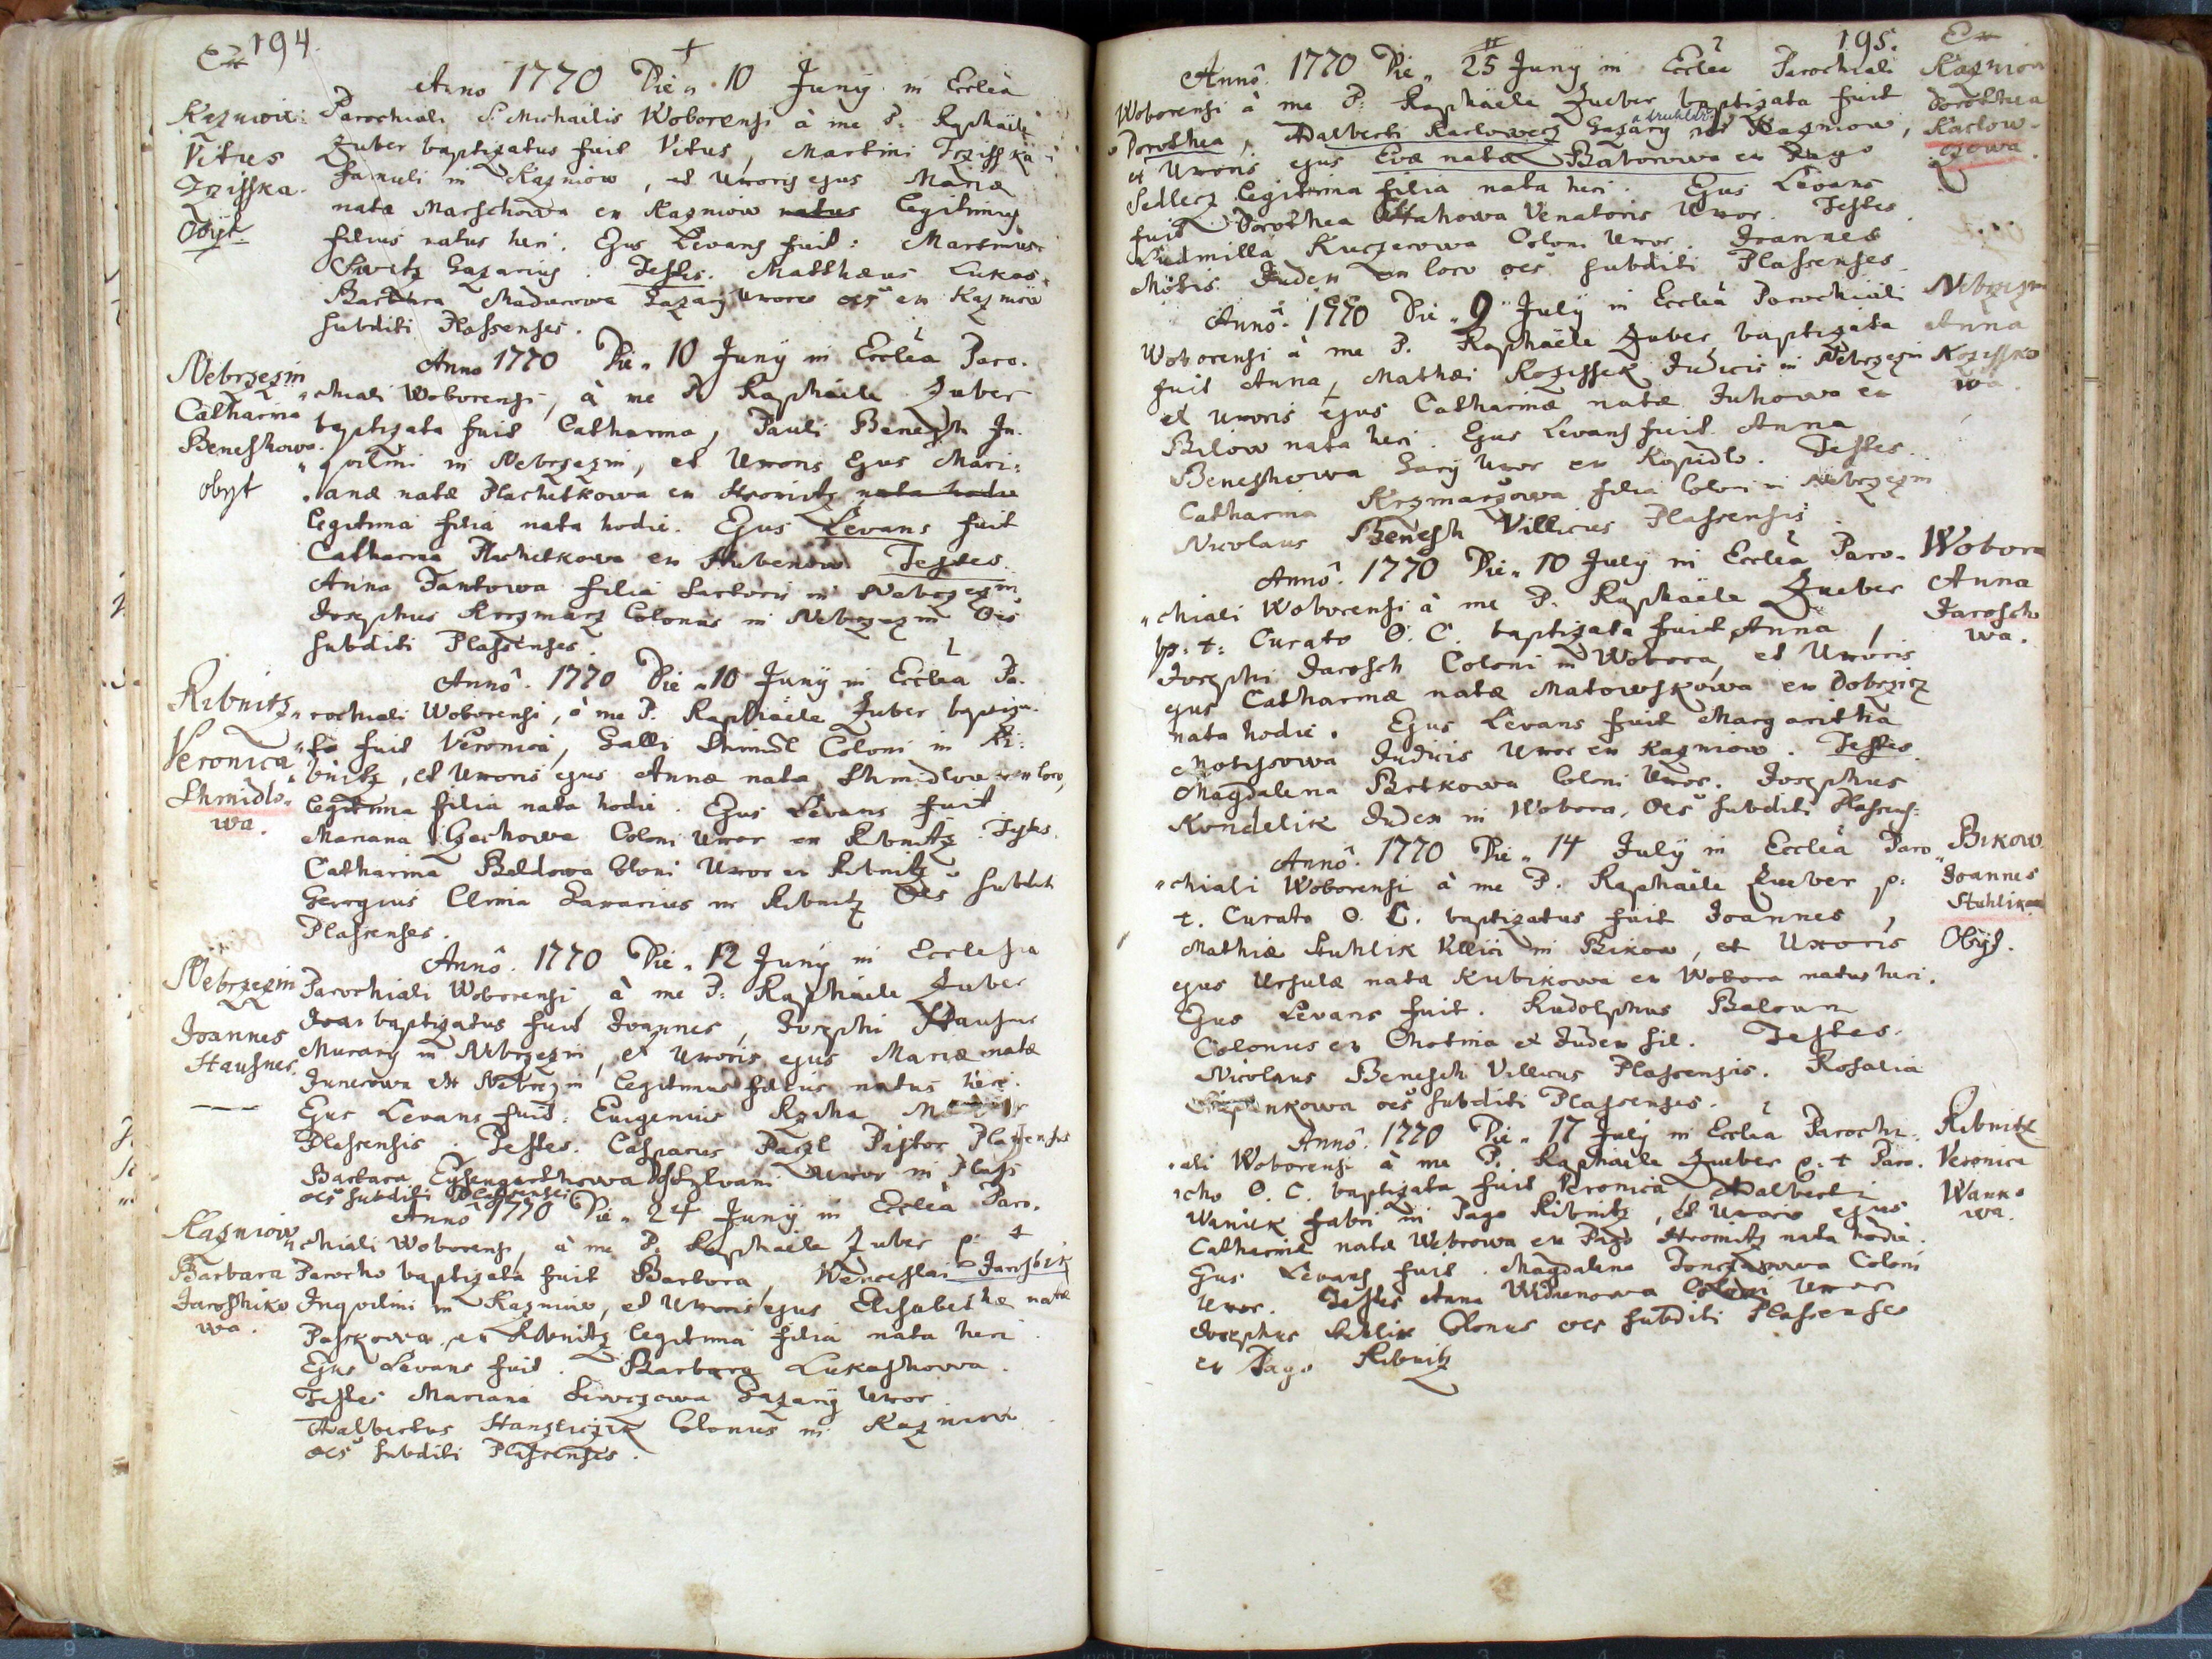 194.
Ex
Kazniow:
Vitus
Trzisska.
Obijt
Anno 1770 Die 10 Junÿ in Ecclêa
Parochiali S. Michaëlis Woborensi à me P. Raphäele
Zuber baptizatus fuit Vitus, Martini Trzisska
Famuli in Kazniow, et Uxoris ejus Mariæ
natæ Marschowa ex Kazniow natus legitimus
filius natus heri. Ejus Levans fuit: Martinus
Gazarius. Testes. Matthæus Lukas
Barbara Madurowa Gazarÿ Uxor oes ex Kazniow
subditi Plassenses.
Nebrzezin
Catharina
Beneshowa.
obijt
Anno 1770 Die 10 Junÿ in Ecclêa Paro-
chiali Woborensi, à me P. Raphäele Zuber
baptizata fuit Catharina, Pauli Benesh In-
qvilini in Nebrzezin, et Uxoris Ejus Mari-
anæ natæ Plachetkowa ex Hromitz nata hodie
legitima filia nata hodie. Ejus Levans fuit
Catharina Plachetkowa ex Hubenow Testes.
Anna Fantowa filia Sartoris in Nebrzezin
Josephus Krzmarz Colonus in Nebrzezin Oes
subditi Plassenses.
Ribnitz
Veronica
Shmidlo-
wa.
Annô. 1770 Die 10 Junÿ in Ecclêa Pa-
rochiali Woborensi, à me P. Raphäele Zuber baptiza-
ta fuit Veronica, Galli Shmidl Coloni in Ri-
bnitz, et Uxoris ejus Annæ nata Shmidlowa ex loco,
legitima filia nata hodie. Ejus Levans fuit
Mariana Czechowa Coloni Uxor ex Ribnitz. Testes.
Catharina Beldowa Coloni Uxor ex Ribnitz
Georgius Clima in Ribnitz Oes subditi
Plassenses.
Nebrzezin
Joannes
Hausner.
Annô. 1770 Die 12 Junÿ in Ecclesia
Parochiali Woborensi à me P. Raphäele Zuber
Joan baptizatus fuit Joannes, Josephi Hausner
Murarÿ in Nebrzezin, et Uxoris ejus Mariæ natæ
Junerowa ex Nebrzezin legitimus filius natus heri.
Ejus Levans fuit: Eugenius
Plassensis. Testes. Casparus Pistor Plassensis
Barbara Uxor in Plass
oes subditi Plassenses
Kazniow
Barbara
Jaroshiko
wa.
Annô 1770 Die 24 Junÿ in Ecclêa Paro-
chiali Woborensi, à me P. Raphäele Zuber p. t
Parocho baptizata fuit Barbora, Wenceslai Jaroshik
Inqvilini in Kazniow, et Uxoris ejus Elisabethæ natæ
Passkowa ex Ribnitz legitima filia nata heri.
Ejus Levans fuit. Barbara Lukashowa.
Testes Mariana Gazarÿ Uxor
Adalbertus Hanzliczek Colonus in Kazniow
oes subditi Plassenses.
195.
Ex
Kazniow
Dorothea
Karlow-
czowa.
Annô. 1770 Die 25 Junÿ in Ecclêa Parochiali
Woborensi à me P. Raphäele Zueber baptizata fuit
Dorothea, Adalberti Karlowecz Gazarÿ Kazniow,
et Uxoris ejus Evæ natæ Batorowa ex Pago
Sedlecz legitima filia nata heri. Ejus Levans
fuit Dorothea Venatoris Uxor. Testes.
Ludmilla Kuczerowa Coloni Uxor. Joannes
Judex in loco oes subditi Plassenses
Nebrzezin
Anna
Kozissko
wa.
Annô. 1770 Die 9 Julÿ in Ecclêa Parochiali
Woborensi à me P. Raphäele Zueber baptizata
fuit Anna, Mathæi Kozissek Judicis in Nebrzezin
et Uxoris ejus Catharinæ natæ Juhowa ex
Bilow nata heri. Ejus Levans fuit Anna
Beneshowa Uxor ex Kopidlo. Testes.
Catharina Krzmarzowa filia Coloni in Nebrzezin
Nicolaus Benesh Villicus Plassensis
Wobora
Anna
Jarosch
wa.
Annô. 1770 Die 10 Julÿ in Ecclêa Paro-
chiali Woborensi à me P. Raphäele Zueber
p. t: Curato O. C. baptizata fuit Anna,
Josephi Jarosch Coloni in Wobora, et Uxoris
ejus Catharinæ natæ Matowskowa ex Dobrzicz
nata hodie. Ejus Levans fuit Margaritha
Motysowa Judicis Uxor ex Kazniow. Testes.
Magdalena Bartkowa Coloni Uxor. Josephus
Kondelik Judex in Wobora, Oes subditi Plassens:
Bikow
Joannes
Stuhlik
Obijt.
Annô. 1770 Die 14 Julÿ in Ecclêa Paro
chiali Woborensi à me P. Raphäele Zueber p:
t. Curato O. C. baptizatus fuit Joannes,
Mathiæ Stuhlik Villici in Bikow, et Uxoris
ejus Ursulæ natæ Kubikowa ex Wobora natus heri.
Ejus Levans fuit. Rudolphus Beloun
Colonus ex Chotina et Judex fil. Testes.
Nicolaus Benesch Villicus Plassensis. Rosalia
oes subditi Plassenses.
Ribnitz
Veronica
Wanko
wa.
Annô. 1770 Die 17 Julÿ in Ecclêa Parochi-
ali Woborensi à me P. Raphäele Zueber p. t Paro-
cho O. C. baptizata fuit Veronica, Adalberti
Waniek fabri in Pago Ribnitz, et Uxoris ejus
Catharinæ natæ Webrowa ex Pago Hromitz nata hodie.
Ejus Levans fuit. Magdalena Coloni
Uxor. Testes Anna Coloni Uxor
Josephus Colonus oes subditi Plassenses
ex Pago Ribnitz